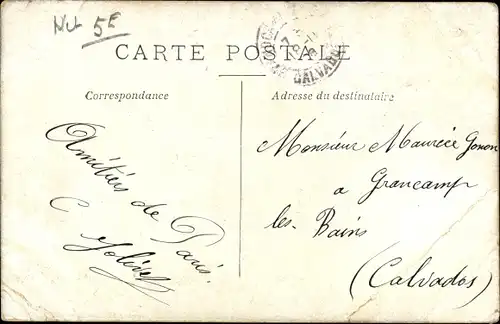 NU 5E
CARTE POSTALE
CALVADOS
Correspondance
Adresse du destinataire
Amitiés de Paris.
Monsieur Maurice
a Grancamp
les Bains
(Calvados)